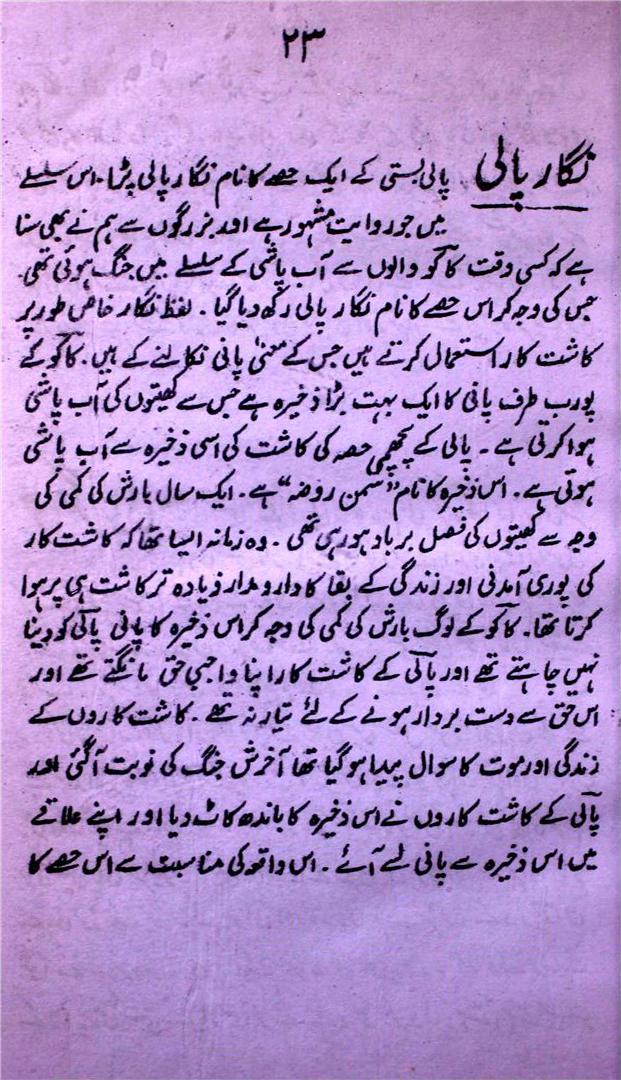 ۲۳
نگار پالی پالی بستی کے ایک حصے کا نام نگار پالی پڑا۔ اس سلسلے
میں جو روایت مشہور ہے اور بزرگوں سے ہم نے بھی سنا
ہے کہ کسی وقت کاکو والوں سے آب پاشی کے سلسلے میں جنگ ہوئی تھی۔
جس کی وجہ کر اس حصے کا نام نگار پالی رکھ دیا گیا۔ لفظ نگار خاص طور پر
کاشت کار استعمال کرتے ہیں جس کے معنیٰ پانی نکالنے کے ہیں۔ کاکو کے
پورب طرف پانی کا ایک بہت بڑا ذخیرہ ہے جس سے کھیتوں کی آب پاشی
ہوا کرتی ہے۔ پالی کے پچھمی حصہ کی کاشت کی اسی ذخیرہ سے آب پاشی
ہوتی ہے۔ اس ذخیرہ کا نام "سمن روضہ" ہے۔ ایک سال بارش کی کمی کی
وجہ سے کھیتوں کی فصل برباد ہو رہی تھی۔ وہ زمانہ ایسا تھا کہ کاشت کار
کی پوری آمدنی اور زندگی کے بقا کا دارومدار زیادہ تر کاشت ہی پر ہوا
کرتا تھا۔ کاکو کے لوگ بارش کی کمی کی وجہ کر اس ذخیرہ کا پانی پالی کو دینا
نہیں چاہتے تھے اور پالی کے کاشت کار اپنا واجبی حق مانگتے تھے اور
اس حق سے دست بردار ہونے کے لئے تیار نہ تھے۔ کاشت کاروں کے
زندگی اور موت کا سوال پیدا ہو گیا تھا آخرش جنگ کی نوبت آ گئی اور
پالی کے کاشت کاروں نے اس ذخیرہ کا باندھ کاٹ دیا اور اپنے علاقے
میں اس ذخیرہ سے پانی لے آئے۔ اس واقعہ کی مناسبت سے اس حصے کا